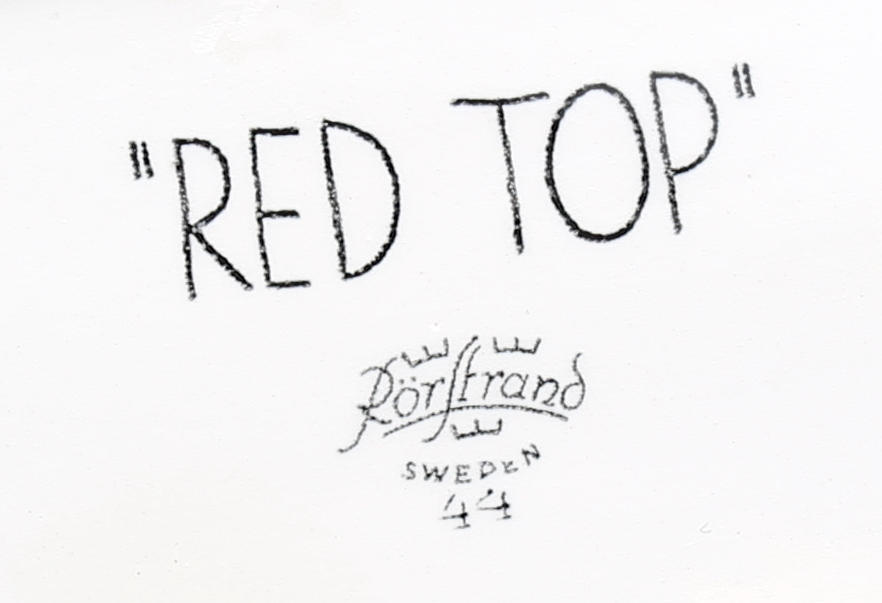 "RED TOP"
Rörstrand
SWEDEN
44